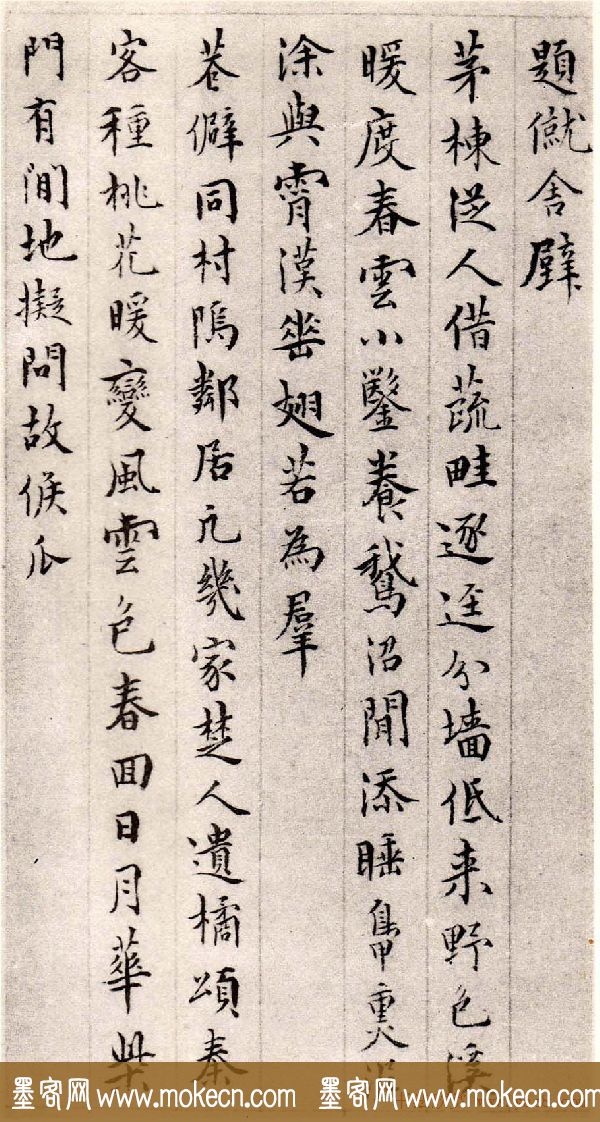 題僦舍壁
茅棟從人借蔬畦逐逕分墻低来野色溪
暖度春雲小鑿養鵝沼閒添睡鳧熏
涂與霄漢㟧翅若為羣
巷僻同村隖鄰居凢幾家楚人遺橘頌秦
客種桃花暖變風雲色春回日月華柴
門有閒地擬問故侯瓜
墨客网 www.mokecn.com 墨客网 www.mokecn.com